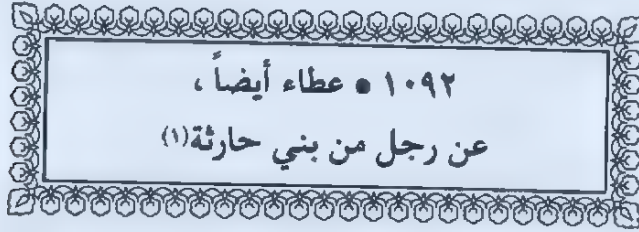 ١٠٩٢ • عطاء أيضاً ،
عن رجل من بني حارثة(١)